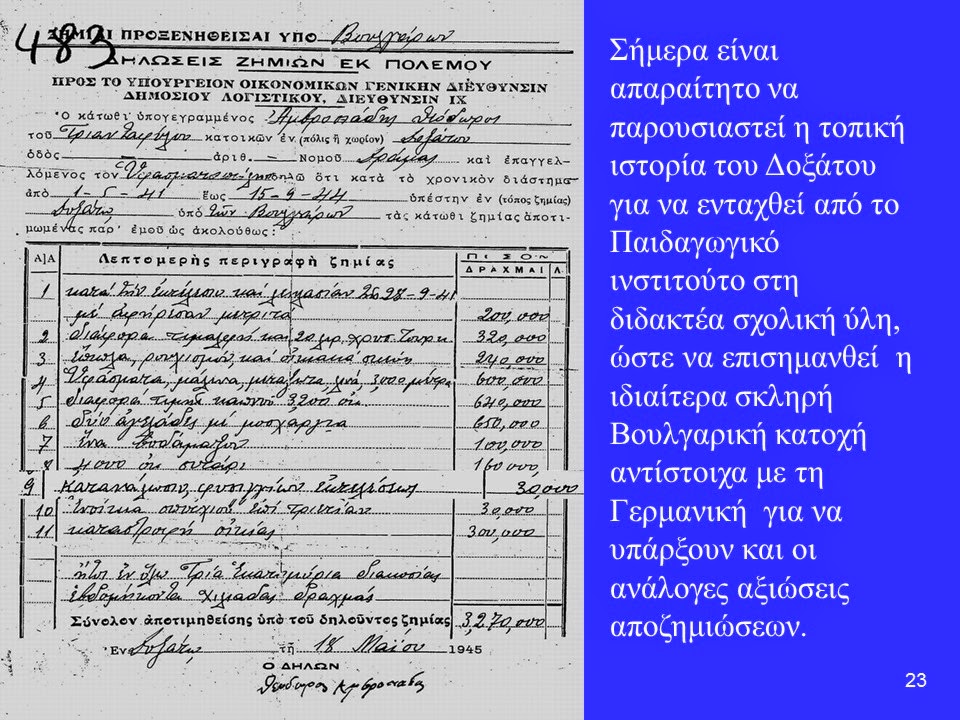 483
ΖΗΜΙΑΙ ΠΡΟΞΕΝΗΘΕΙΣΑΙ ΥΠΟ Βουλγάρων
ΔΗΛΩΣΕΙΣ ΖΗΜΙΩΝ ΕΚ ΠΟΛΕΜΟΥ
ΠΡΟΣ ΤΟ ΥΠΟΥΡΓΕΙΟΝ ΟΙΚΟΝΟΜΙΚΩΝ ΓΕΝΙΚΗΝ ΔΙΕΥΘΥΝΣΙΝ
ΔΗΜΟΣΙΟΥ ΛΟΓΙΣΤΙΚΟΥ, ΔΙΕΥΘΥΝΣΙΝ ΙΧ
Ὁ κάτωθι ὑπογεγραμμένος Θεόδωρος
τοῦ κατοικῶν ἐν (πόλις ἢ χωρίον) Δοξάτον
ὁδὸς — ἀριθ. — Νομοῦ Δράμας καὶ ἐπαγγελ-
λόμενος τὸν δηλῶ ὅτι κατὰ τὸ χρονικὸν διάστημα
ἀπὸ 1-5-41 ἕως 15-9-44 ὑπέστην ἐν (τόπος ζημίας)
Δοξάτω ὑπὸ τῶν Βουλγάρων τὰς κάτωθι ζημίας ἀποτι-
μωμένας παρ' ἐμοῦ ὡς ἀκολούθως:
Α)Α Λεπτομερὴς περιγραφὴ ζημίας ΠΟΣΟΝ
ΔΡΑΧΜΑΙ Λ.
1 κατὰ τὴν καὶ 28-9-41
μὲ ἀφήρεσαν μετρητὰ 200,000
2 διάφορα καὶ 20 χρυσ. 320,000
3 ἔπιπλα, ρουχισμὸς καὶ 240,000
4 Ὑφάσματα, μάλινα, μεταξωτὰ 3000 μέτρα 600,000
5 διαφορὰ τιμῆς καπνοῦ 3200 ὀκ 640,000
6 δύο ἀγελάδες μὲ μοσχάρια 650,000
7 ἕνα 100,000
8 ὀκ σιτάρι 160,000
9 30,000
10 30,000
11 καταστροφὴ οἰκίας 300,000
ἤτοι ἐν ὅλω Τρία Ἑκατομμύρια διακοσίας
ἑβδομήκοντα χιλιάδας δραχμὰς
Σύνολον ἀποτιμηθείσης ὑπὸ τοῦ δηλοῦντος ζημίας 3,270,000
Ἐν Δοξάτω τῇ 18 Μαΐου 1945
Ο ΔΗΛΩΝ
Θεόδωρος
Σήμερα είναι
απαραίτητο να
παρουσιαστεί η τοπική
ιστορία του Δοξάτου
για να ενταχθεί από το
Παιδαγωγικό
ινστιτούτο στη
διδακτέα σχολική ύλη,
ώστε να επισημανθεί η
ιδιαίτερα σκληρή
Βουλγαρική κατοχή
αντίστοιχα με τη
Γερμανική για να
υπάρξουν και οι
ανάλογες αξιώσεις
αποζημιώσεων.
23